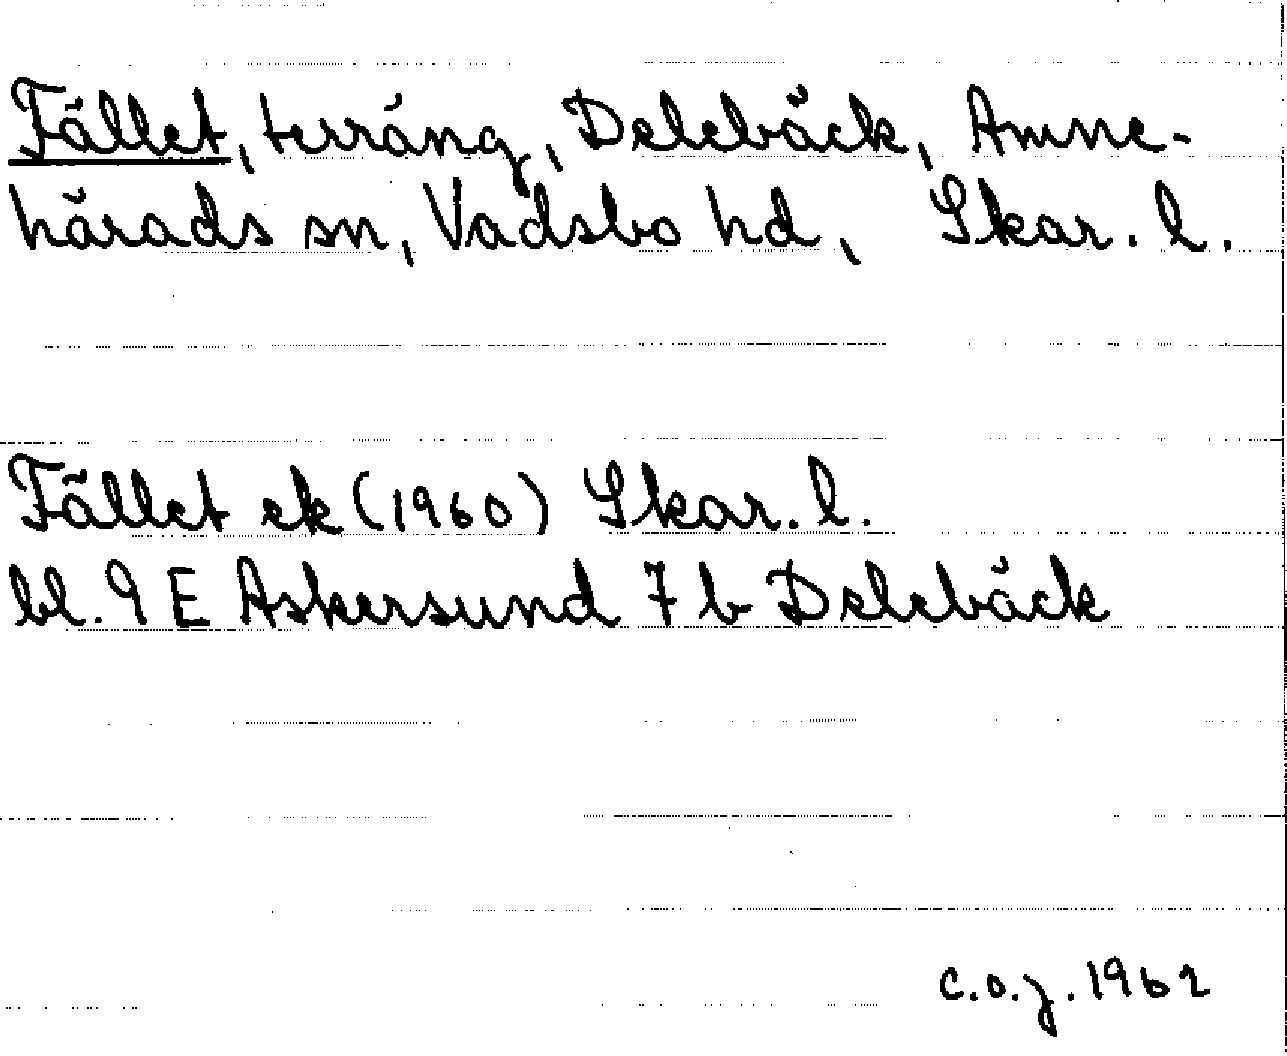 Fället, terräng, Delebäck, Amne-
härads sn, Vadsbo hd, Skar. l.
Fället ek (1960) Skar. l.
bl. 9 E Askersund 7 b Delebäck
C.O.J. 1962